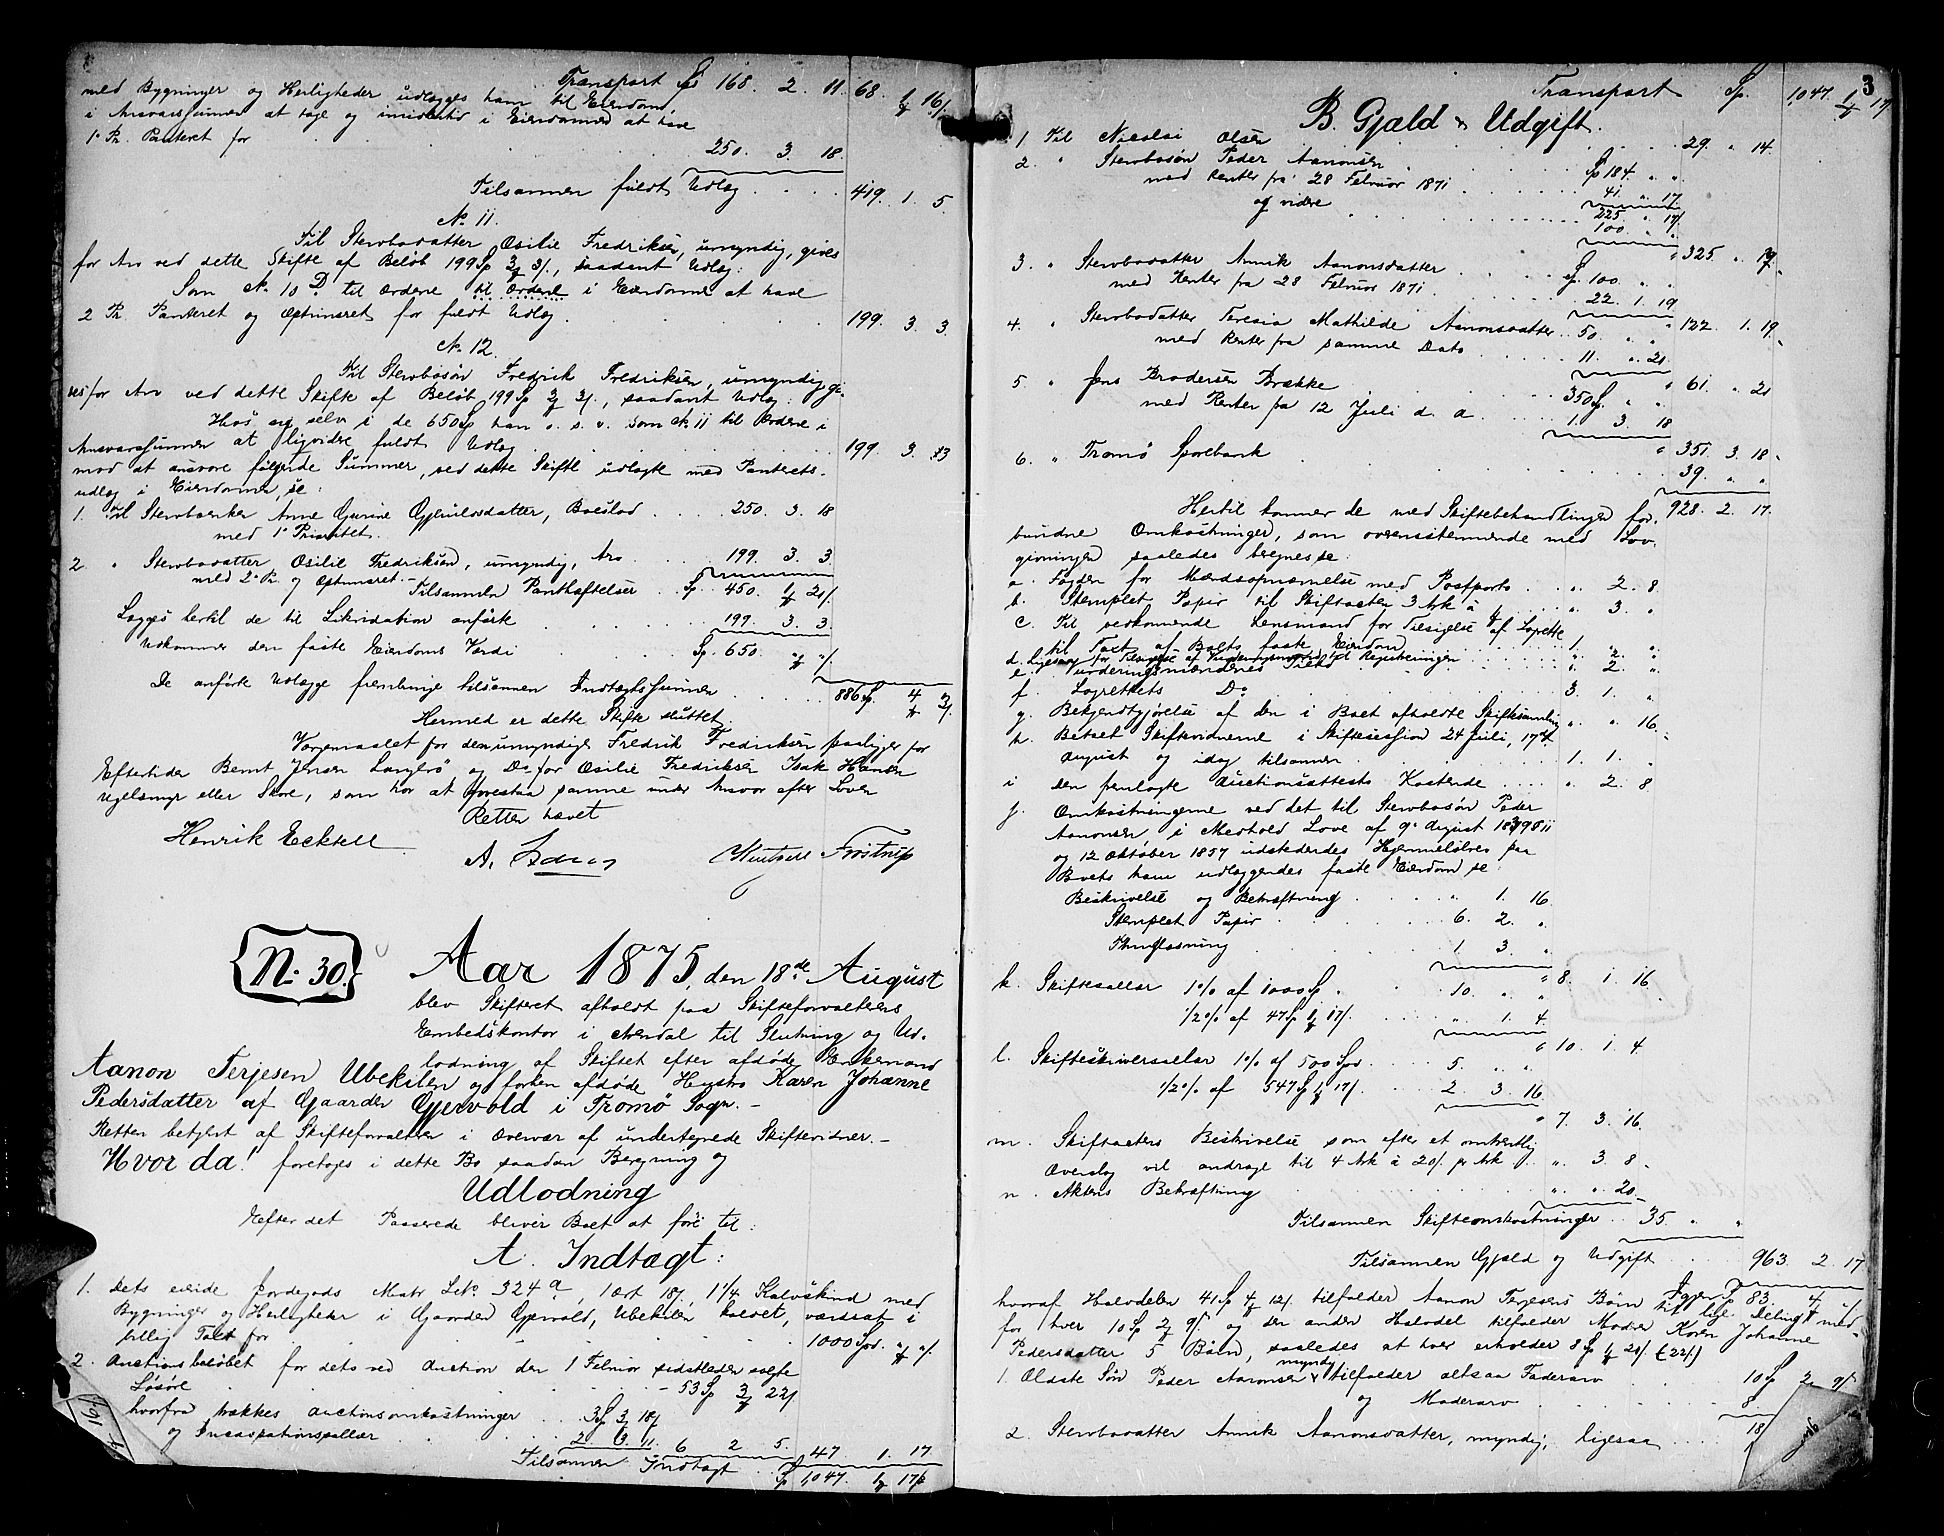 Transport Sp 168. 2. 11. 68. 1 16
med Bygninger og Herligheder udlægges ham til Eiendom,
i Ansvarssummen at tage og imidlertid i Eiendommen at have
1. Pr. Panteret for 250. 3. 18.
Tilsammen fuldt Udlæg 419. 1. 5.
No. 11.
Til Stervbodatter Osilie Fredriksen, umyndig, gives
for Arv ved dette Skifte af Beløb 199 Sp 3 3/., saadant Udlæg:
Som No. 10 D. til ordene til ordene i Eiendomme at have
2 Pr. Panteret og Optrinsret for fuldt Udlæg 199. 3. 3.
No. 12.
Til Stervbosøn Fredrik Fredriksen, umyndig gi-
ves for Arv ved dette Skifte af Beløb 199 Sp 3 3/., saadant Udlæg:
Hos sig selv i de 650 Sp han o. s. v. som No 11 til Ordene i
Ansvarssummen at liqvidere fuldt Udlæg 199. 3. 3
mod at ansvare følgende Summer, ved dette Skifte udlagte med Panterets-
udlæg i Eiendomme, se:
1. Til Stervboenken Anne Gurine Gjeruldsdatter, Boeslod 250. 3. 18
med 1ste Prioritet.
2. " Stervbodatter Osilie Fredriksen, umyndig, Arv 199. 3. 3
med 2. Pr. og Optrinsret.- Tilsammen Panthæftelser Sp. 450. 1 21/.
Lægges hertil de til Likvidation anførte 199. 3. 3.
Udkommer den faste Eiendoms Værdi Sp. 650. " "/.
De anførte Udlægge frembringe tilsammen Indtægtssummen 886 Sp. 4 3/.
Hermed er dette Skifte sluttet.
Værgemaalet for den umyndige Fredrik Fredriksen paaligger for
Eftertiden Bernt Jensen Langbrø og Do for Osilie Fredriksen Isak Hansen
Ugelsmyr eller Skare, som har at forestaa samme under Ansvar efter Loven
Retten hævet
Henrik Eckell
A.
Frøstrup
No. 30.
Aar 1875, den 18de August
blev Skifteret afholdt paa Skifteforvalterens
Embedskontor i Arendal til Slutning og Ud-
lodning af Skiftet efter afdøde Enkemand
Aanon Terjesen Ubekilen og forhen afdøde Hustro Karen Johanne
Pedersdatter af Gaarden Gjervold i Tromø Sogn. -
Retten betjent af Skifteforvalteren i Overvær af undertegnede Skiftevidner. -
Hvor da! foretoges i dette Bo saadan Beregning og
Udlodning
Efter det Passerede bliver Boet at føre til:
A. Indtægt:
1. Dets eiende Jordegods Matr. L.No. 324a, 1 ort 18/, 1 1/4 Kalvskind med
Bygninger og Herligheder i Gaarden Gjervold, Ubekilen kaldet, værdsat i
billig Taxt for 1000 Spd. " "/.
2. Auctionsbeløbet for dets ved Auction den 1 Februar sidstleden solgte
Løsøre - 53 Sp 3 22/
hvorfra trækkes Auctionsomkostninger 3 Sp 3 18/
og Incassationssallær 2. 3. 11. 6 2 5. 47 1. 17
Tilsammen Indtægt Sp 1,047. 1 17/
3
Transport Sp. 1,047. 1 17/
B. Gjæld & Udgift.
1. Til Nicolai Olsen 29. " 14.
2. " Stervbosøn Peder Aanonsen Sp 184. " "
med Renter fra 28 Februar 1871 41. " 17
225. " 17/
og videre 100. " "
" 325. " 17
3. " Stervbodatter Annik Aanonsdatter Sp 100. " "
med Renter fra 28 Februar 1871 22. 1. 19
4. " Stervbodatter Teresia Mathilde Aanonsdatter 50. " " " 122. 1. 19
med Renter fra samme Dato 11. " 21
5. " Jens Brodersen Brække 350 Sp. " " " 61. " 21
med Renter fra 12 Juli d. A. 1. 3. 18
" 351. 3. 18
6. " Tromø Sparebank 39. " "
928. 2. 17.
Hertil kommer de med Skiftebehandlingen for-
bundne Omkostninger, som overensstemmende med Lov-
givningen saaledes beregnes se:
a. Fogden for Mændsopnævnelse med Postporto ". 2. 8.
b. Stemplet Papir til Skifteacten 3 Ark à ". 3. "
c. Til vedkommende Lensmand for Tilsigelse af Lagrette
til Taxt af Boets faste Eiendom 1. " "
d. Ligesaa for Tilsigelse af Vurderingsmænd til Registeringen ". 2. "
e. Vurderingsmændenes Tilk ". 2. "
f. Lagrettets Do 3. 1. "
g. Bekjendtgjørelse af den i Boet afholdte Skiftesamling ". " 16.
h. Betalt Skiftevidnerne i Skiftesession 24 Juli, 17de
August og idag tilsammen 1. 1. "
i. Den fremlagte Auctionsattests Kostende ". 2. 8
j. Omkostningerne ved det til Stervbosøn Peder
Aanonsen i Medhold Love af 9de August 1839 § 11
og 12 Oktober 1857 udstedendes Hjemmelsbrev paa
Boets ham udlæggendes faste Eiendom se:
Beskrivelse og Bekræftning " 1. 16
Stemplet Papir 6. 2. "
Thinglæsning 1 3. "
" 8. 1. 16.
k. Skiftesallær 1% af 1000 Sp 10. " "
1/2% af 47 Sp 1 17/. " 1. 4.
" 10. 1. 4.
l. Skifteskriversallær 1% af 500 Spd 5. " "
1/2% af 547 Sp 1 17/. 2. 3. 16
" 7. 3. 16
m. Skifteactens Beskrivelse som efter et omtrentlig
Overslag vil andrage til 4 Ark à 20/. pr Ark ". 3. 8.
n. Aktens Bekræftning ". " 20.
Tilsammen Skifteomkostninger 35. " "
Tilsammen Gjæld og Udgift 963. 2. 17
Igjen Sp 83. 4 "/
hvoraf Halvdelen 41 Sp 4 12/. tilfalder Aanon Terjesens Børn til lige Deling med
for hver 10 Sp 2 9/. og den anden Halvdel tilfalder Moder Karen Johanne
Pedersdatter 5 Børn, saaledes at hver erholder 8 Sp 1 20/. (22/.)
1. Ældste Søn Peder Aanonsen myndig tilfalder altsaa Faderarv 10 Sp 2 9/.
og Moderarv 8
18
2. Stervbodatter Annik Aanonsdatter, myndig, ligesaa